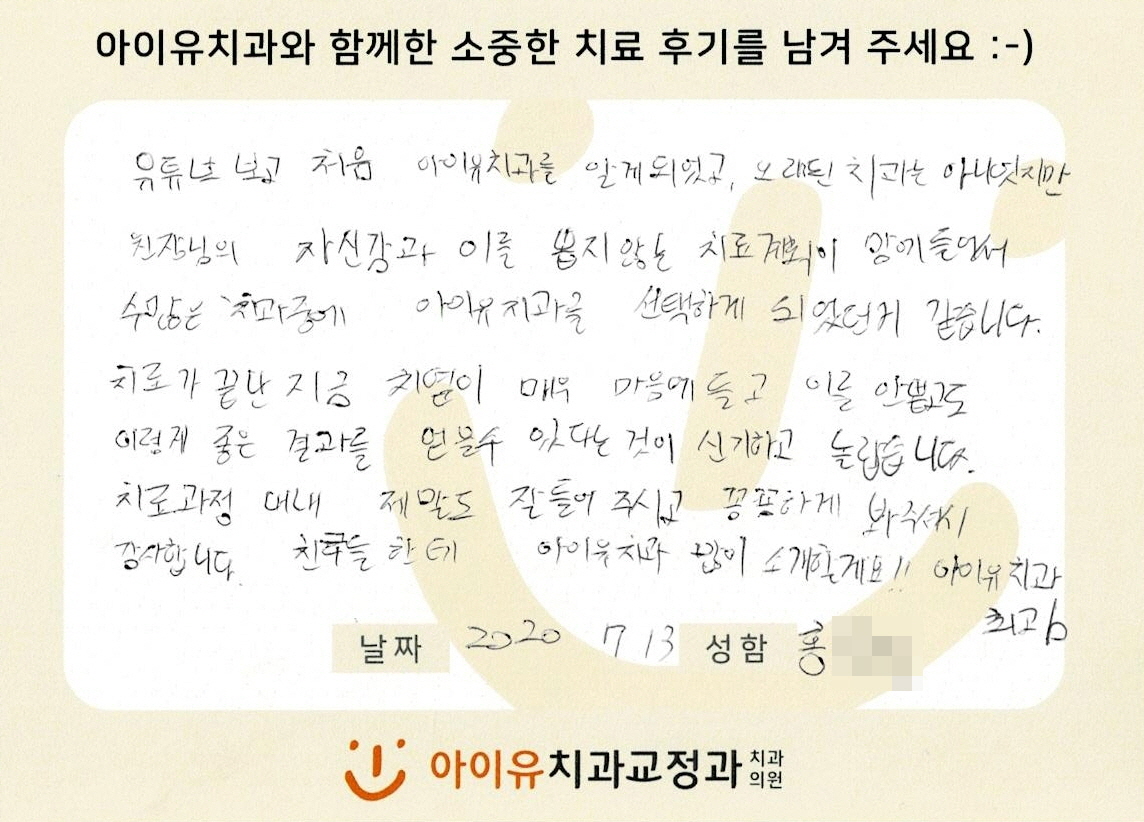 아이유치과와 함께한 소중한 치료 후기를 남겨 주세요 :-)
유튜브 보고 처음 아이유치과를 알게되었고, 오래된 치과는 아니었지만
원장님의 자신감과 이를 뽑지않는 치료계획이 맘에들어서
수많은 치과중에 아이유치과를 선택하게 되었던거 같습니다.
치료가 끝난 지금 치열이 매우 마음에들고 이를 안뽑고도
이렇게 좋은 결과를 얻을수 있다는 것이 신기하고 놀랍습니다.
치료과정 내내 제말도 잘들어 주시고 꼼꼼하게 봐주셔서
감사합니다. 친구들 한테 아이유치과 많이 소개할게요!! 아이유치과
최고b
날짜 2020 7 13 성함 홍
아이유치과교정과 치과의원